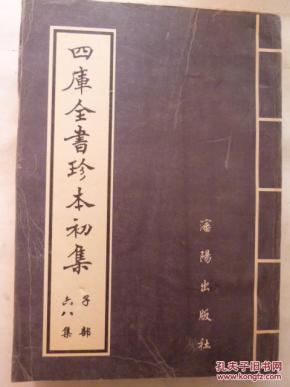 四庫全書珍本初集
子部
六八集
瀋陽出版社
孔夫子旧书网